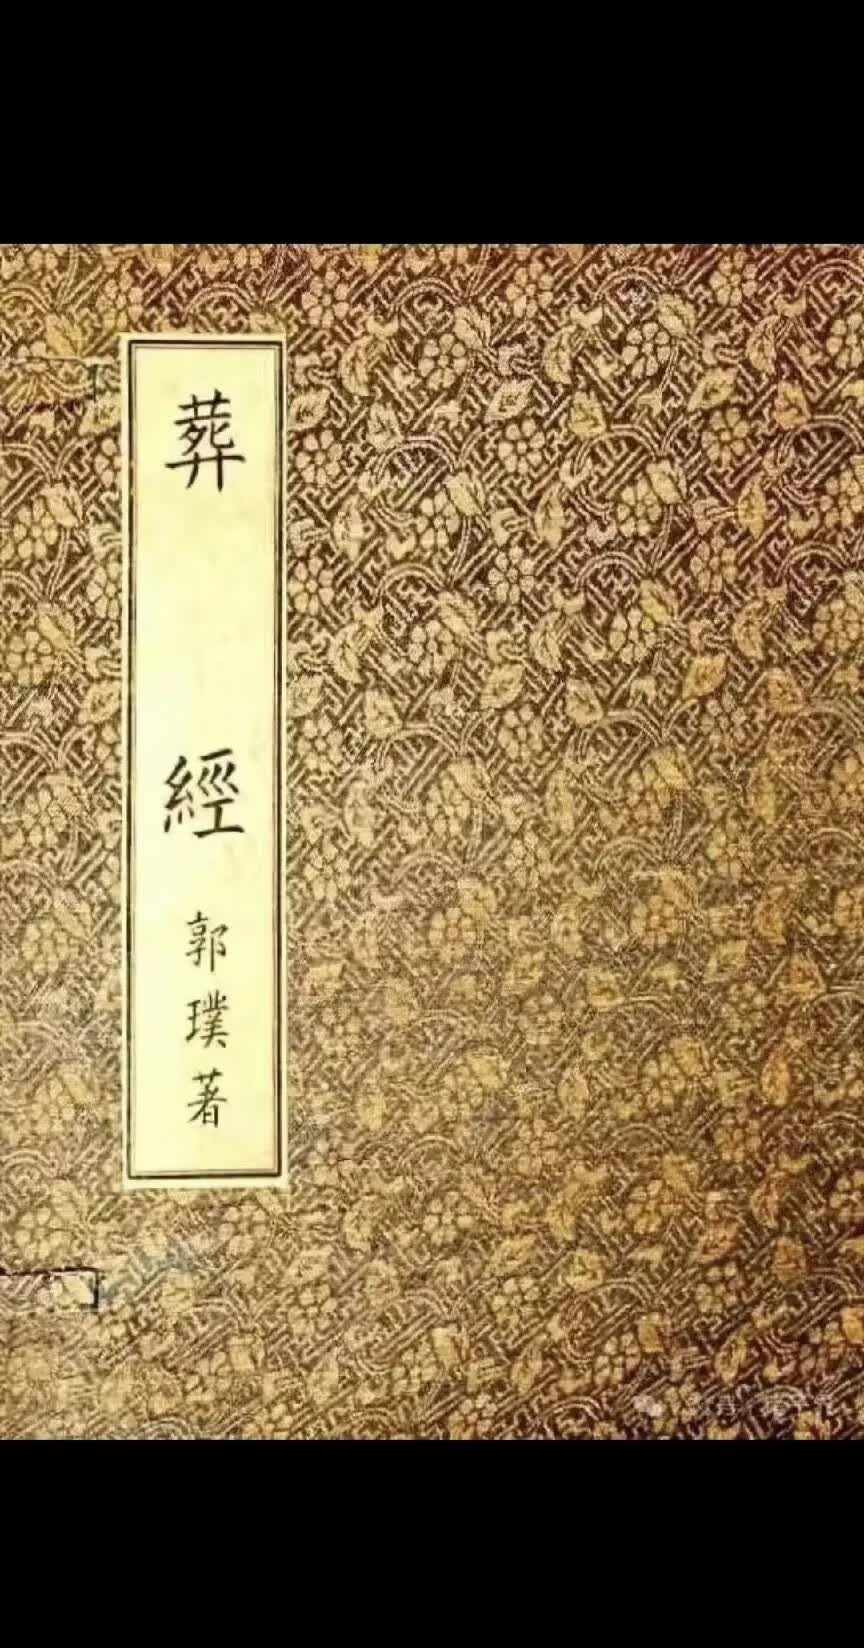 葬經
郭璞著